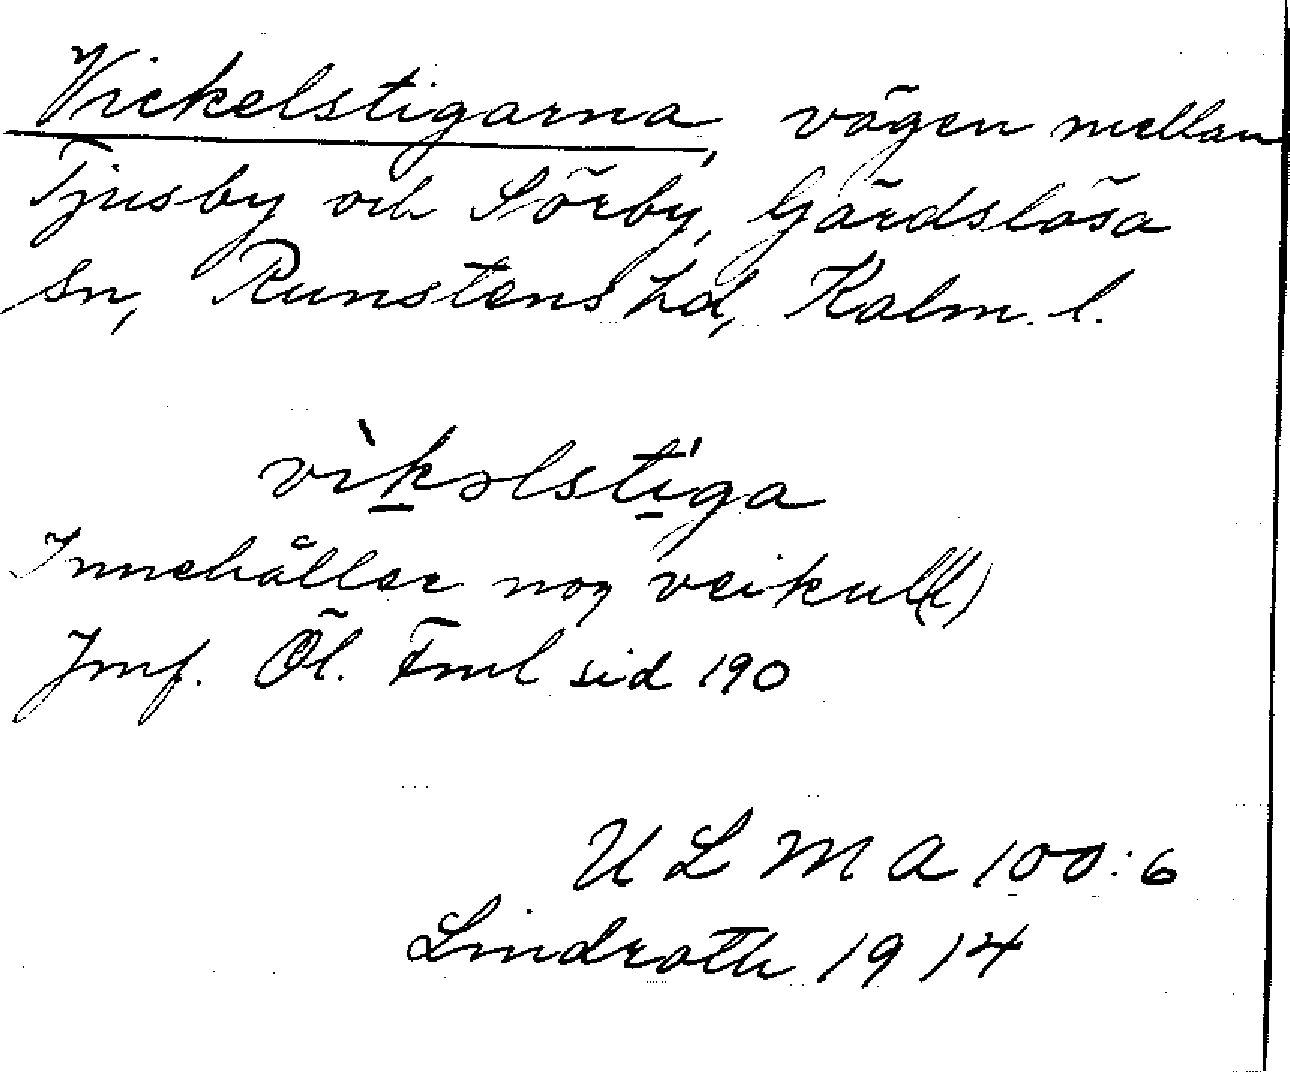 Vickelstigarna, vägen mellan
Tjusby och Sörby, Gärdslösa
sn, Runstens hd, Kalm. l.
vìkəlstiga
Innehåller nog veikul(l)
Jmf. Öl. Fml sid 190
U L M A 100:6
Lindroth 1914